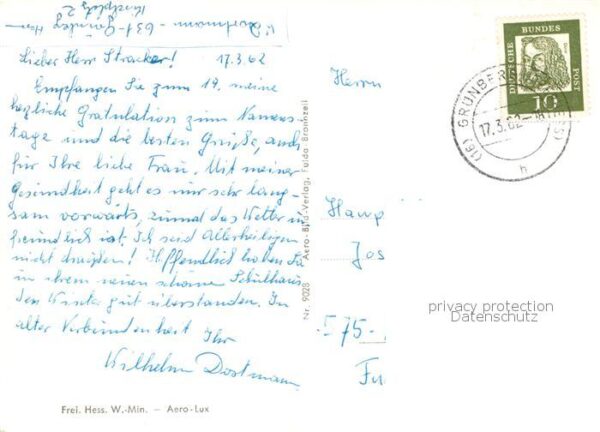 631-Grünberg
17.3.62
Lieber Herr Stracker!
Empfangen Sie zum 19. meine
herzliche Gratulation zum Namens-
tage und die besten Grüße, auch
für Ihre liebe Frau. Mit meiner
Gesundheit geht es nur sehr lang-
sam vorwärts, zumal das Wetter un
freundlich ist. Ich seid Allerheiligen
nicht draußen! Hoffentlich haben Sie
in ihrem neuen schönen Schulhaus
den Winter gut überstanden. In
alter Verbundenheit Ihr
Wilhelm Dostmann
Frei. Hess. W.-Min. — Aero-Lux
Nr. 9028 Aero-Bild-Verlag, Fulda Bronnzell
Herrn
Haup
Jos
575-
Fu
DEUTSCHE BUNDES POST
10
(16) GRÜNBERG
17.3.62
h
privacy protection
Datenschutz